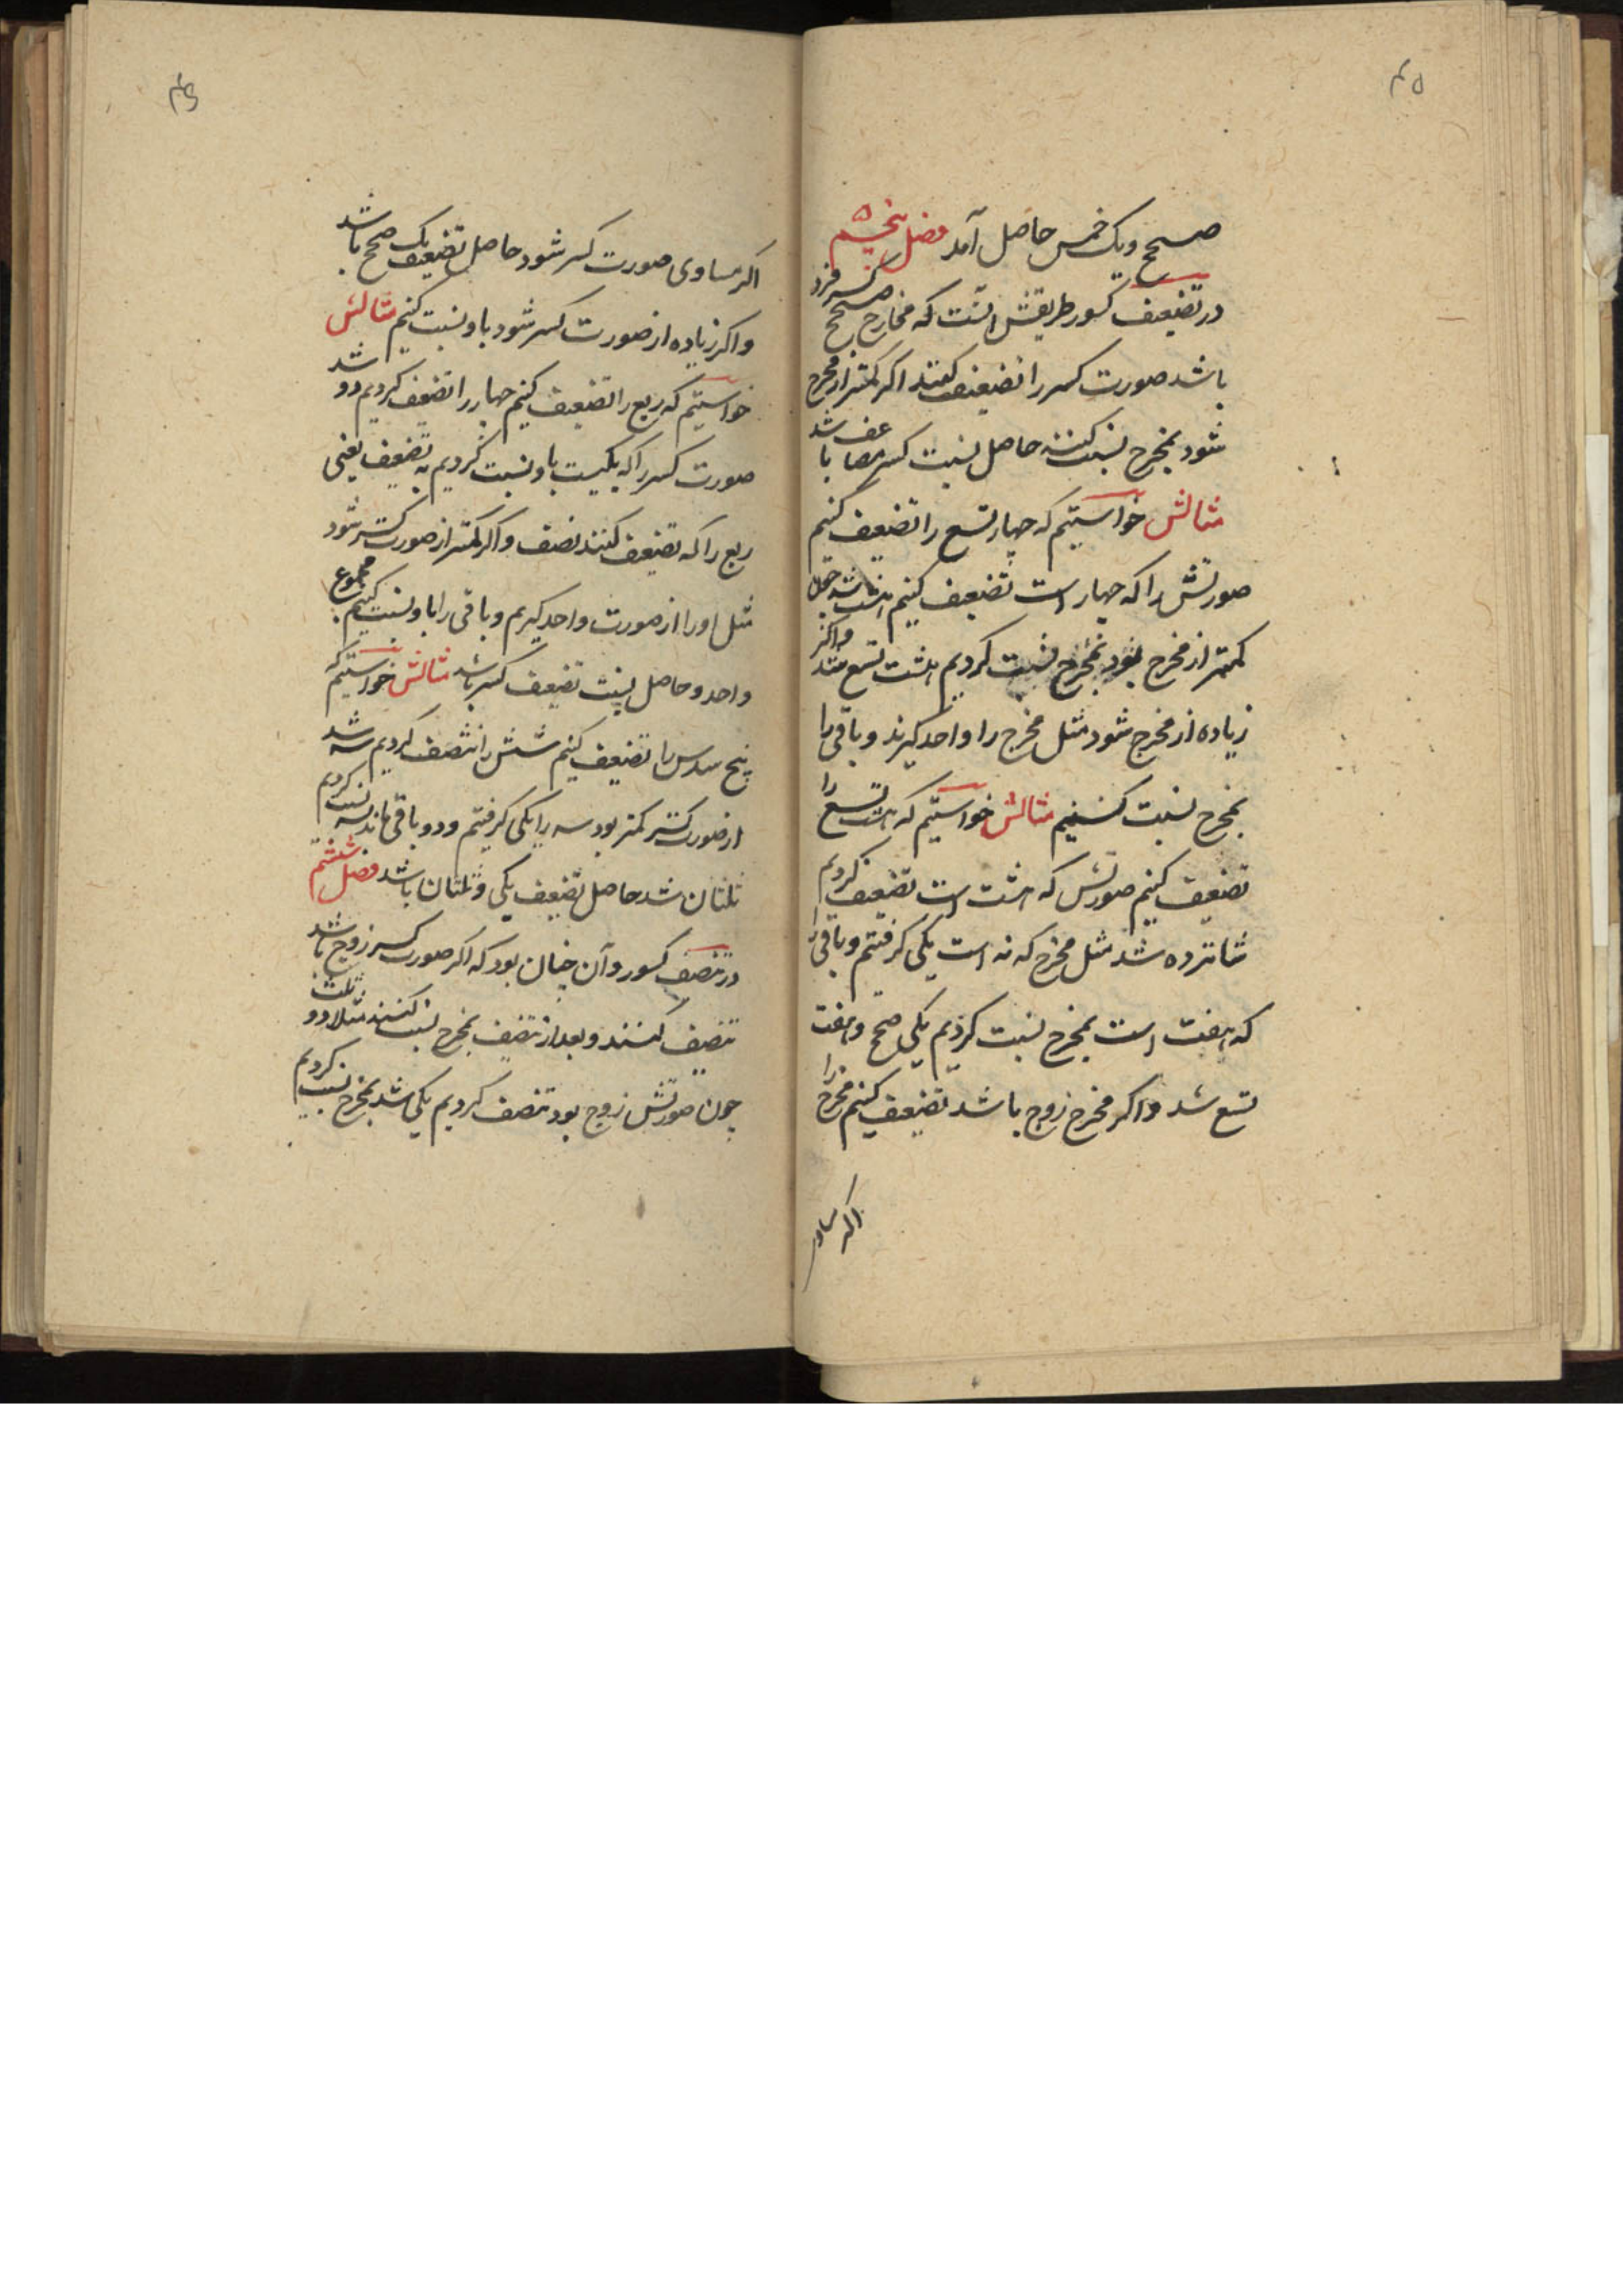 ۴۵
صحیح ویک خمس حاصل آمد فصل پنجم
در تضعیف کسور طریقش آنست که مخارج صحیح کسر فرد
باشد صورت کسر را تضعیف کنند اگر کمتر از مخرج
شود بمخرج نسبت کنند حاصل نسبت کسر مضاعف باشد
مثالش خواستیم که چهار تسع را تضعیف کنیم
صورتش را که چهار است تضعیف کنیم هشت شد چون
کمتر از مخرج بود بمخرج نسبت کردیم هشت تسع شد واکر
زیاده از مخرج شود مثل مخرج را واحد کیرند و باقی را
بمخرج نسبت کنیم مثالش خواستیم که هشت تسع را
تضعیف کنیم صورتش که هشت است تضعیف کردیم
شانزده شد مثل مخرج که نه است یکی کرفتیم و باقی را
که هفت است بمخرج نسبت کردیم یکی صحیح و هفت
تسع شد واکر مخرج زوج باشد تضعیف کنیم مخرج را
اکر مساوی
۴۶
اکر مساوی صورت کسر شود حاصل تضعیف یک صحیح باشد
واکر زیاده از صورت کسر شود باو نسبت کنیم مثالش
خواستیم که ربع را تضعیف کنیم چهار را تضعیف کردیم دو شد
صورت کسر را که یکیست باو نسبت کردیم به تضعیف یعنی
ربع را که تضعیف کنند نصف واکر کمتر از صورت کسر شود
مثل او را از صورت واحد کیریم و باقی را باو نسبت کنیم مجموع
واحد و حاصل نسبت تضعیف کسر باشد مثالش خواستیم که
پنج سدس را تضعیف کنیم شش را تنصیف کردیم سه شد
از صورت کسر کمتر بود سه را یکی کرفتیم و دو باقی ماند بسه نسبت کردیم
ثلثان شد حاصل تضعیف یکی و ثلثان باشد فصل ششم
در تنصیف کسور و آن چنان بود که اکر صورت کسر زوج باشد
تنصیف کنند و بعد از تنصیف بمخرج نسبت کنند مثلا دو ثلث
چون صورتش زوج بود تنصیف کردیم یکی شد بمخرج نسبت کردیم